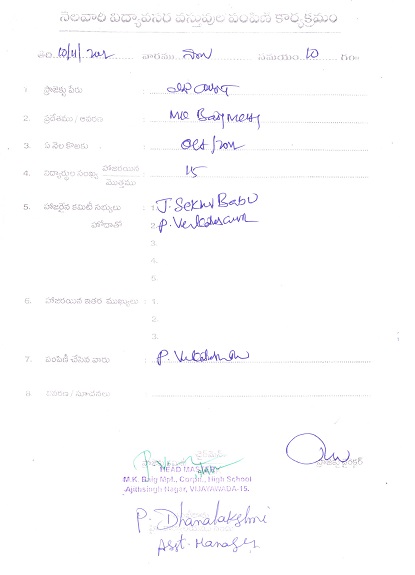 నెలవారి విద్యావసర వస్తువుల పంపిణి కార్యక్రమం
తేది వారము సమయం 10 గం॥
1 ప్రాజెక్టు పేరు :
2. ప్రదేశము / ఆవరణ : MK Baig MCHS
3. ఏ నెల కొరకు :
4. విద్యార్థుల సంఖ్య హాజరయిన / మొత్తము : 15
5. హాజరైన కమిటి సభ్యులు : 1. J. Sekhar Babu
హోదాతో 2. P. Venkateswara
3.
4.
5.
6. హాజరయిన ఇతర ముఖ్యులు : 1.
2.
3.
7. పంపిణీ చేసిన వారు :
8. వివరణ / సూచనలు :
HEAD MASTER
M.K. Baig Mpl., Corpn., High School
Ajithsingh Nagar, VIJAYAWADA-15.
P. Dhanalakshmi
Asst. Manager